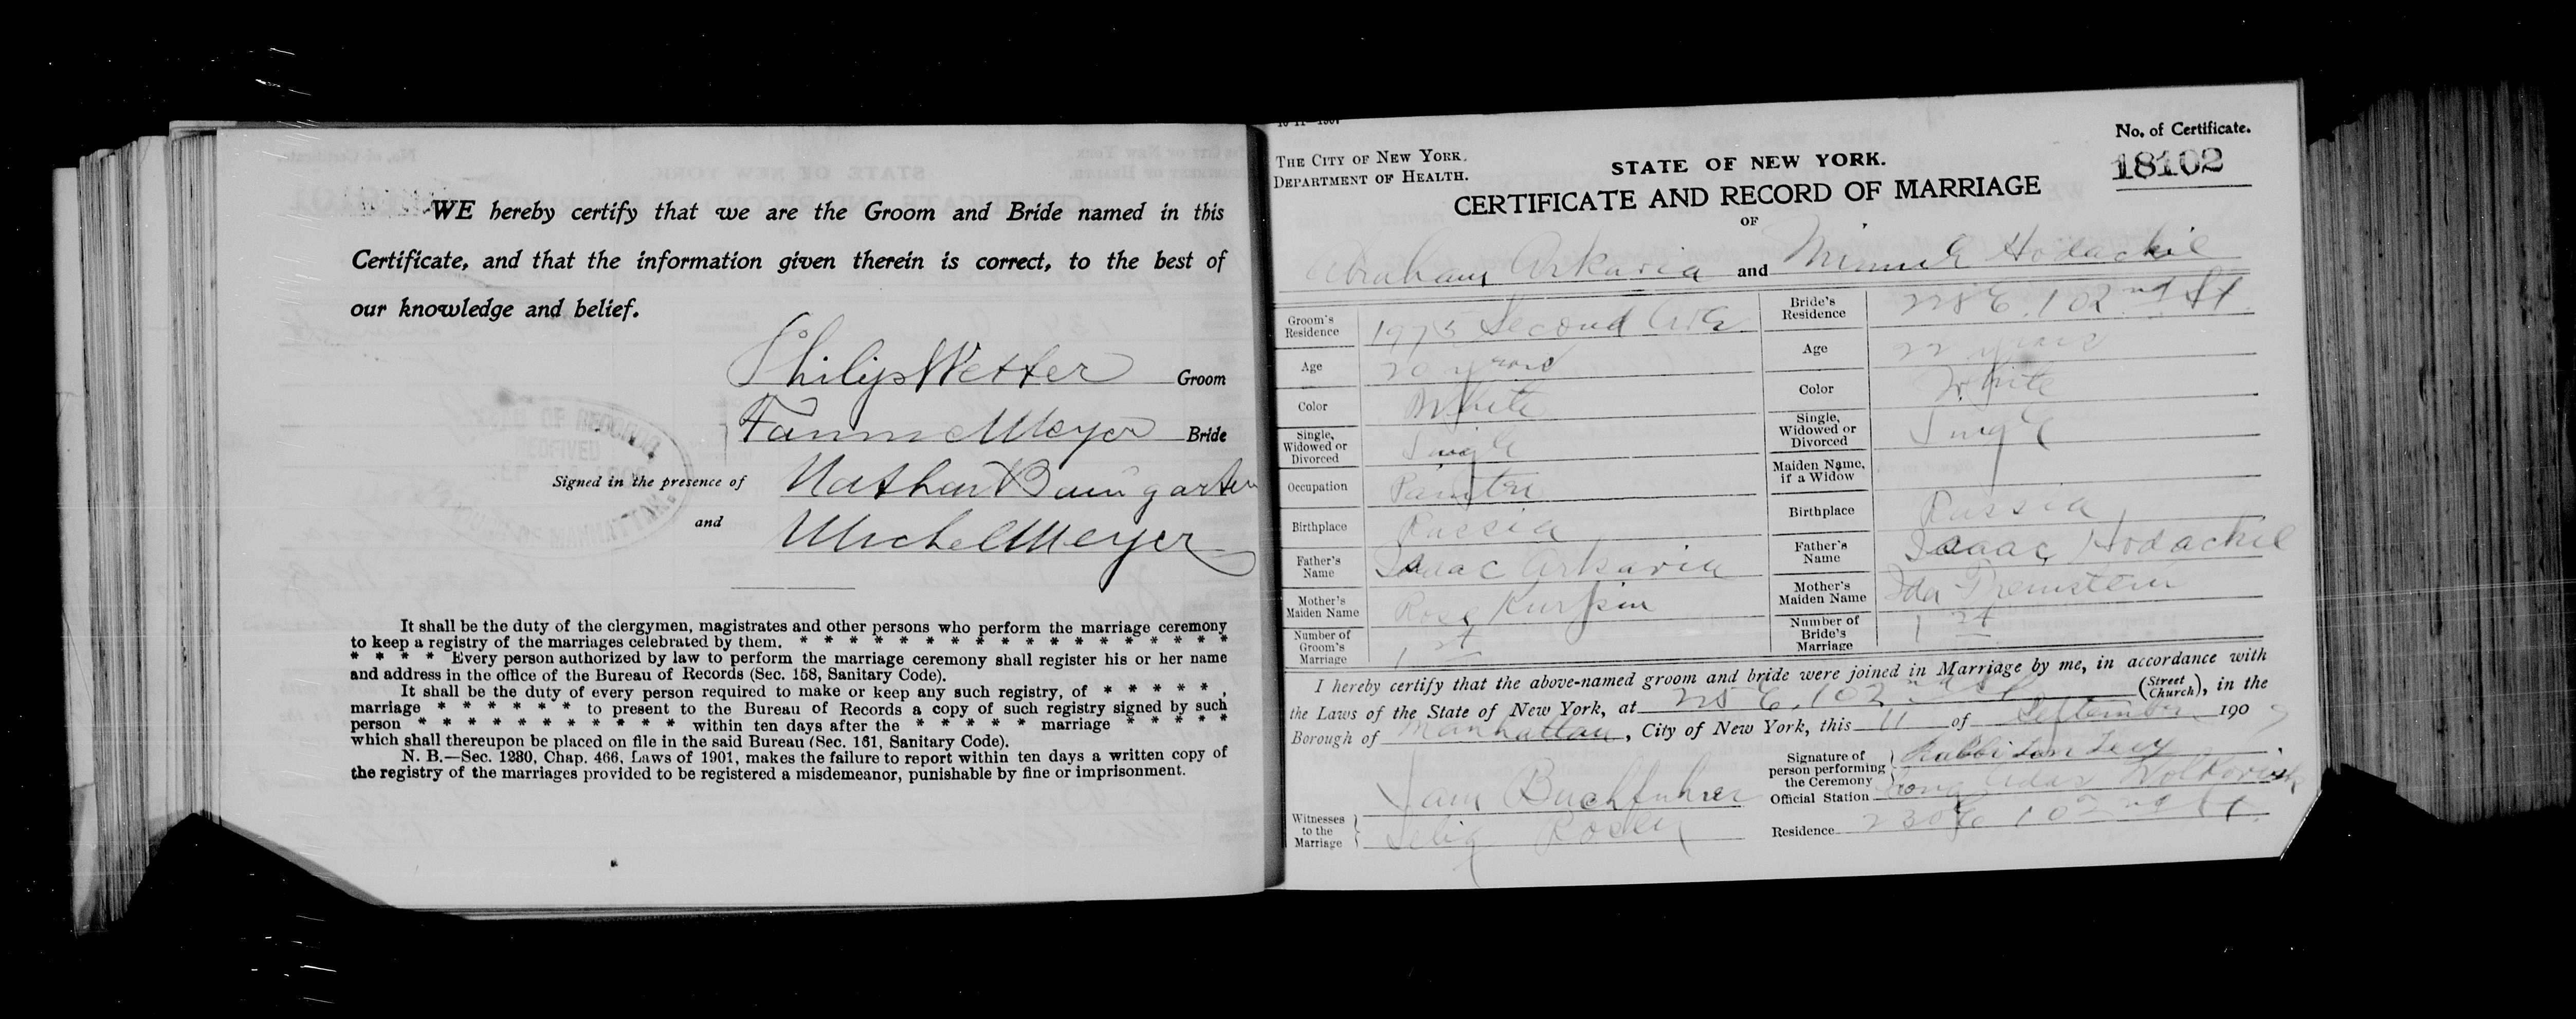 WE hereby certify that we are the Groom and Bride named in this
Certificate, and that the information given therein is correct, to the best of
our knowledge and belief.
Philip Wetter Groom
Fannie Meyer Bride
Signed in the presence of Nathan Baumgarten
and Michel Meyer
It shall be the duty of the clergymen, magistrates and other persons who perform the marriage ceremony
to keep a registry of the marriages celebrated by them. * * * * * * * * * * * * * * * * * *
* * * * Every person authorized by law to perform the marriage ceremony shall register his or her name
and address in the office of the Bureau of Records (Sec. 158, Sanitary Code).
It shall be the duty of every person required to make or keep any such registry, of * * * * * ,
marriage * * * * * * to present to the Bureau of Records a copy of such registry signed by such
person * * * * * * * * * * * within ten days after the * * * * * marriage * * * * *
which shall thereupon be placed on file in the said Bureau (Sec. 161, Sanitary Code).
N. B.—Sec. 1280, Chap. 466, Laws of 1901, makes the failure to report within ten days a written copy of
the registry of the marriages provided to be registered a misdemeanor, punishable by fine or imprisonment.
No. of Certificate.
18102
THE CITY OF NEW YORK.
DEPARTMENT OF HEALTH.
STATE OF NEW YORK.
CERTIFICATE AND RECORD OF MARRIAGE
OF
Abraham Arkavia and Minnie Hodachie
Groom's Residence 1975 Second Ave
Bride's Residence 228 E. 102nd St
Age 20 years
Age 22 years
Color White
Color White
Single, Widowed or Divorced Single
Single, Widowed or Divorced Single
Occupation Painter
Maiden Name, if a Widow
Birthplace Russia
Birthplace Russia
Father's Name Isaac Arkavia
Father's Name Isaac Hodachie
Mother's Maiden Name Rose
Mother's Maiden Name Ida
Number of Groom's Marriage 1st
Number of Bride's Marriage 1st
I hereby certify that the above-named groom and bride were joined in Marriage by me, in accordance with
the Laws of the State of New York, at 228 E. 102nd St (Street Church), in the
Borough of Manhattan, City of New York, this 11 of September 1907
Signature of person performing the Ceremony Rabbi Levy
Official Station Cong Adas
Witnesses to the Marriage
Sam Buchfuhrer
Selig Rosen
Residence 230 E 102nd St.